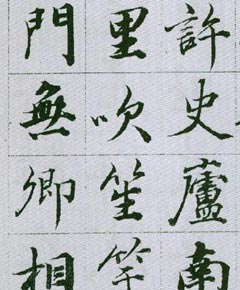 許史廬南
里吹笙竽
門無卿相